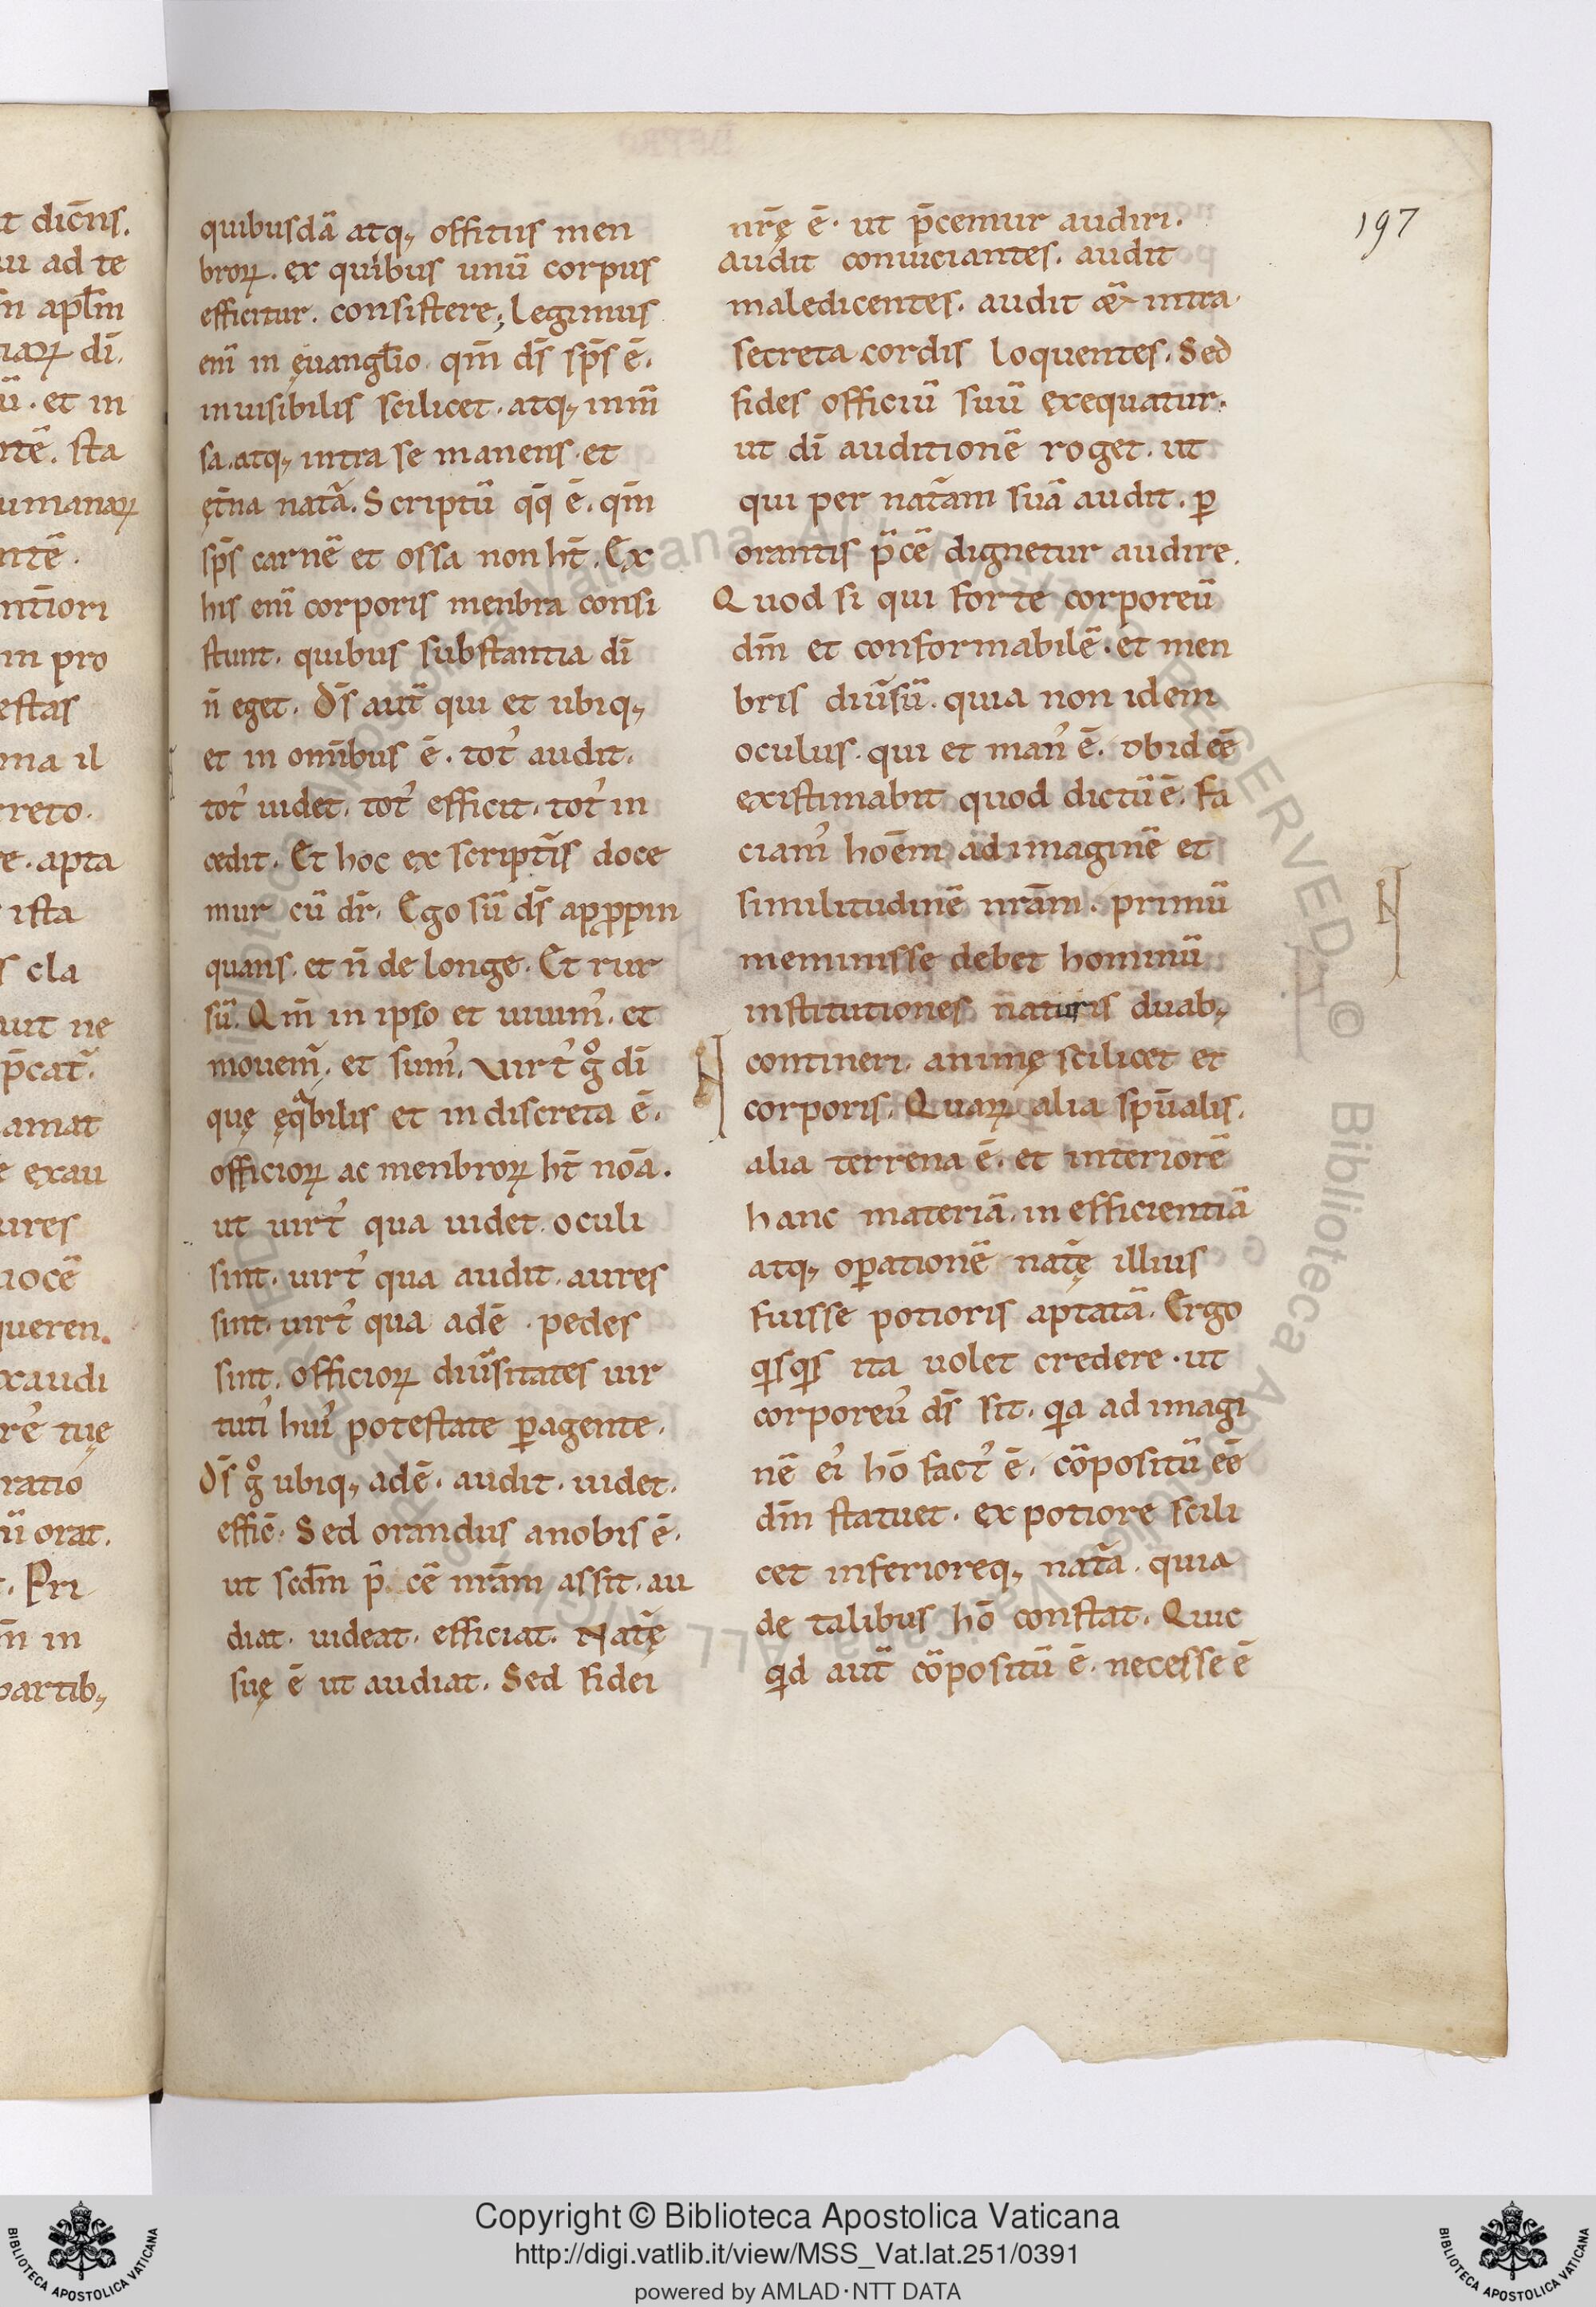 t dicēns.
ui ad te
m̄ apl̄m
iaꝝ dī.
ū. et in
ntē. sta
umanaꝝ
ntē.
nt̄iori
m pro
estas
na il
reto.
e. apta
ista
s cla
uit ne
p̄cat̃.
amat
e exau
ures
uocē
queren.
xaudi
re᷒ tuę
ratio
ū orat.
. Fri
m̄ in
partib;
quibusdā atq; offitiis men
broꝝ. ex quibus unū corpus
efficitur. consistere; Legimus
enī in ęuangl̄io. qm̄ ds̄ sps̄ ē.
inuisibilis scilicet. atq; inm̄
sa. atq; intra se manens. et
ęt̄na nat̃a. Scriptū qq̄ ē. qm̄
sps̄ carnē et ossa non ht̄. Ex
his enī corporis menbra consi
stunt. quibus substantia dī
n̄ eget. Ds̄ aut̄ qui et ubiq;
et in omīibus ē. totꝰ audit.
totꝰ uidet. totꝰ efficit. totꝰ in
cedit. Et hoc ex script̃is doce
mur cū dr̄. Ego sū ds̄ appꝓpin
quans. et n̄ de longe. Et rur
sū. Qm̄ in ipso et uiuimꝰ. et
mouem̃. et sumꝰ. Virtꝰ gͦ dī
quę ęqͣbilis et indiscreta ē.
officioꝝ ac menbroꝝ ht̄ noā.
ut uirtꝰ qua uidet. oculi
sint. uirtꝰ qua audit. aures
sint. uirtꝰ qua adē. pedes
sint. officioꝝ diūsitates uir
tutiꝰ huiꝰ potestate ꝑagente.
Ds̄ gͦ ubiq; adē. audit. uidet.
effic̄. Sed orandus anobis ē.
ut scdm̄ p̄ cē nr̄am assit. au
diat. uideat. efficiat. Nat̃ę
suę ē ut audiat. Sed fidei
197
nr̄ę ē. ut p̄cemur audiri.
Audit conuiciantes. audit
maledicentes. audit & intra
secreta cordis loquentes. Sed
fides officiū suū exequatur.
ut dī auditionē roget. ut
qui per nat̃am suā audit. ꝑ
orantis p̄cē dignetur audire.
Quod si qui forte corporeū
dm̄ et conformabilē. et men
bris diūsū. quia non idem
oculus. qui et manꝰ ē. ob id eē
existimabit quod dictū ē. Fa
ciamꝰ hoēm ad imaginē et
similitudinē nr̄am. primū
meminisse debet hominū
institutiones naturis duab;
contineri. animę scilicet et
corporis. Quaꝝ alia spūalis.
alia terrena ē. et interiorē
hanc materiā. in efficientiā
atq; oꝑationē nat̃ę illius
fuisse potioris aptatā. Ergo
qͥsqͥs ita uolet credere. ut
corporeuꝰ ds̄ sit. qͥa ad imagi
nē eiꝰ hō factꝰ ē. cōpositū eē
dm̄ statuet. ex potiore scili
cet inferioreq; nat̃a. quia
de talibus hō constat. Quic
qͥd aut̄ cōpositū ē. necesse ē
Copyright © Biblioteca Apostolica Vaticana
http://digi.vatlib.it/view/MSS_Vat.lat.251/0391
powered by AMLAD·NTT DATA
BIBLIOTECA APOSTOLICA VATICANA
BIBLIOTECA APOSTOLICA VATICANA